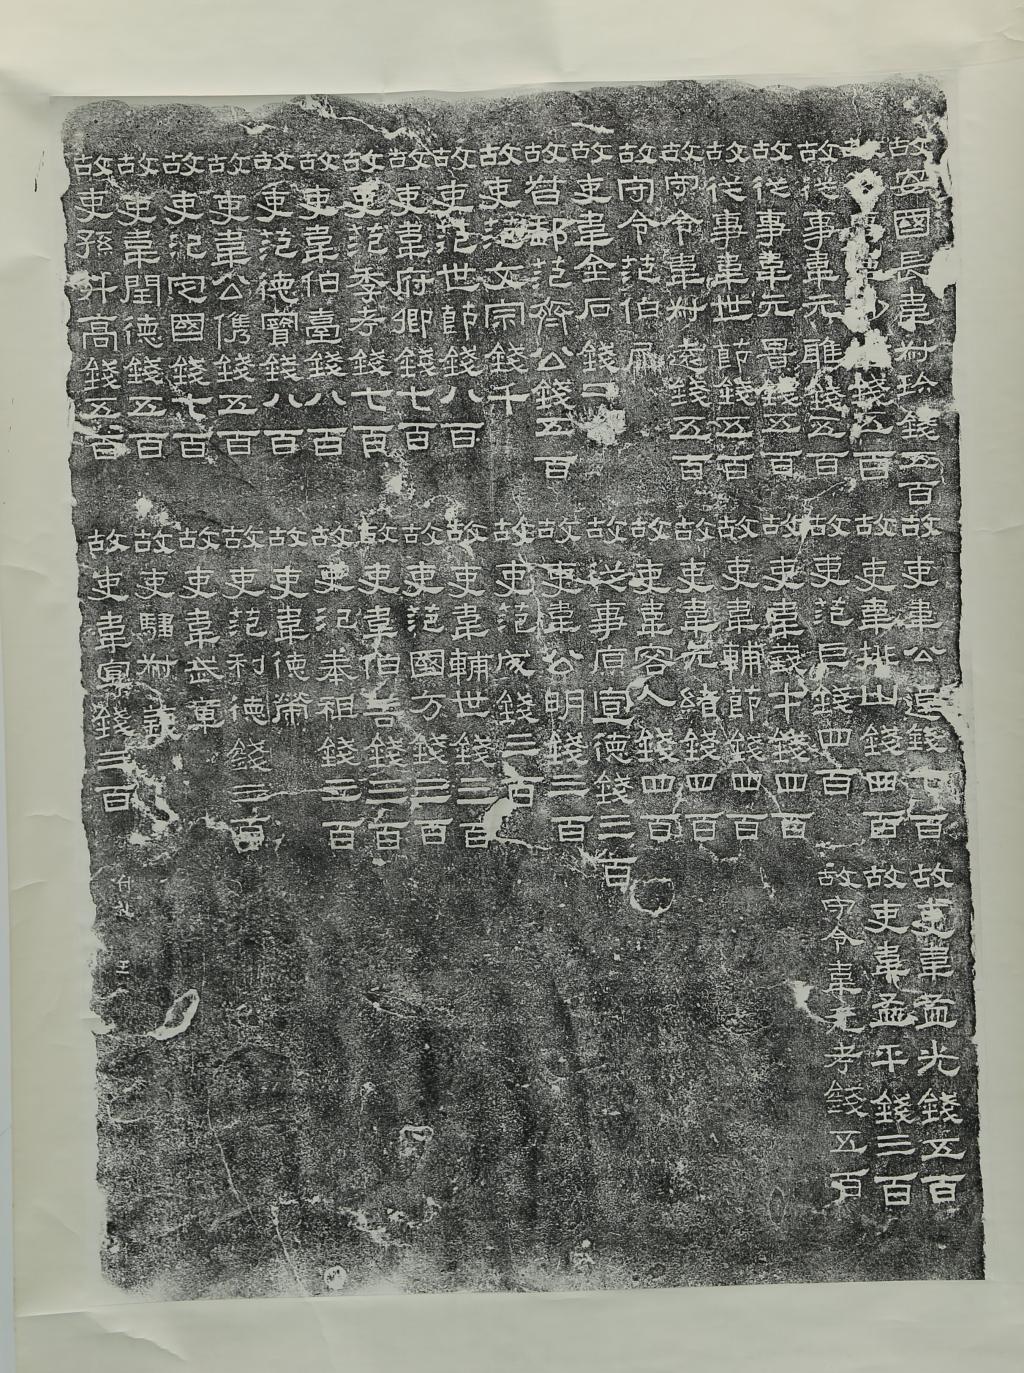 故安國長韋叔珍錢五百
故從事韋錢五百
故從事韋元雅錢五百
故從事韋元景錢五百
故從事韋世節錢五百
故守令韋叔遠錢五百
故守令范伯犀
故吏韋金石錢二百
故督郵范齊公錢五百
故吏范文宗錢千
故吏范世節錢八百
故吏韋府卿錢七百
故吏范季考錢七百
故吏韋伯臺錢八百
故吏范德寶錢八百
故吏韋公儁錢五百
故吏氾定國錢七百
故吏韋閏德錢五百
故吏孫升高錢五百
故吏韋公逴錢七百
故吏韋排山錢四百
故吏范巨錢四百
故吏韋義才錢四百
故吏韋輔節錢四百
故吏韋元緒錢四百
故吏韋容人錢四百
故從事原宣德錢三百
故吏韋公明錢三百
故吏范成錢三百
故吏韋輔世錢三百
故吏范國方錢三百
故吏韋伯善錢三百
故吏氾奉祖錢三百
故吏韋德榮
故吏范利德錢三百
故吏韋武章
故吏騶叔義
故吏韋宣錢三百
故吏韋孟光錢五百
故吏韋孟平錢三百
故守令韋元考錢五百